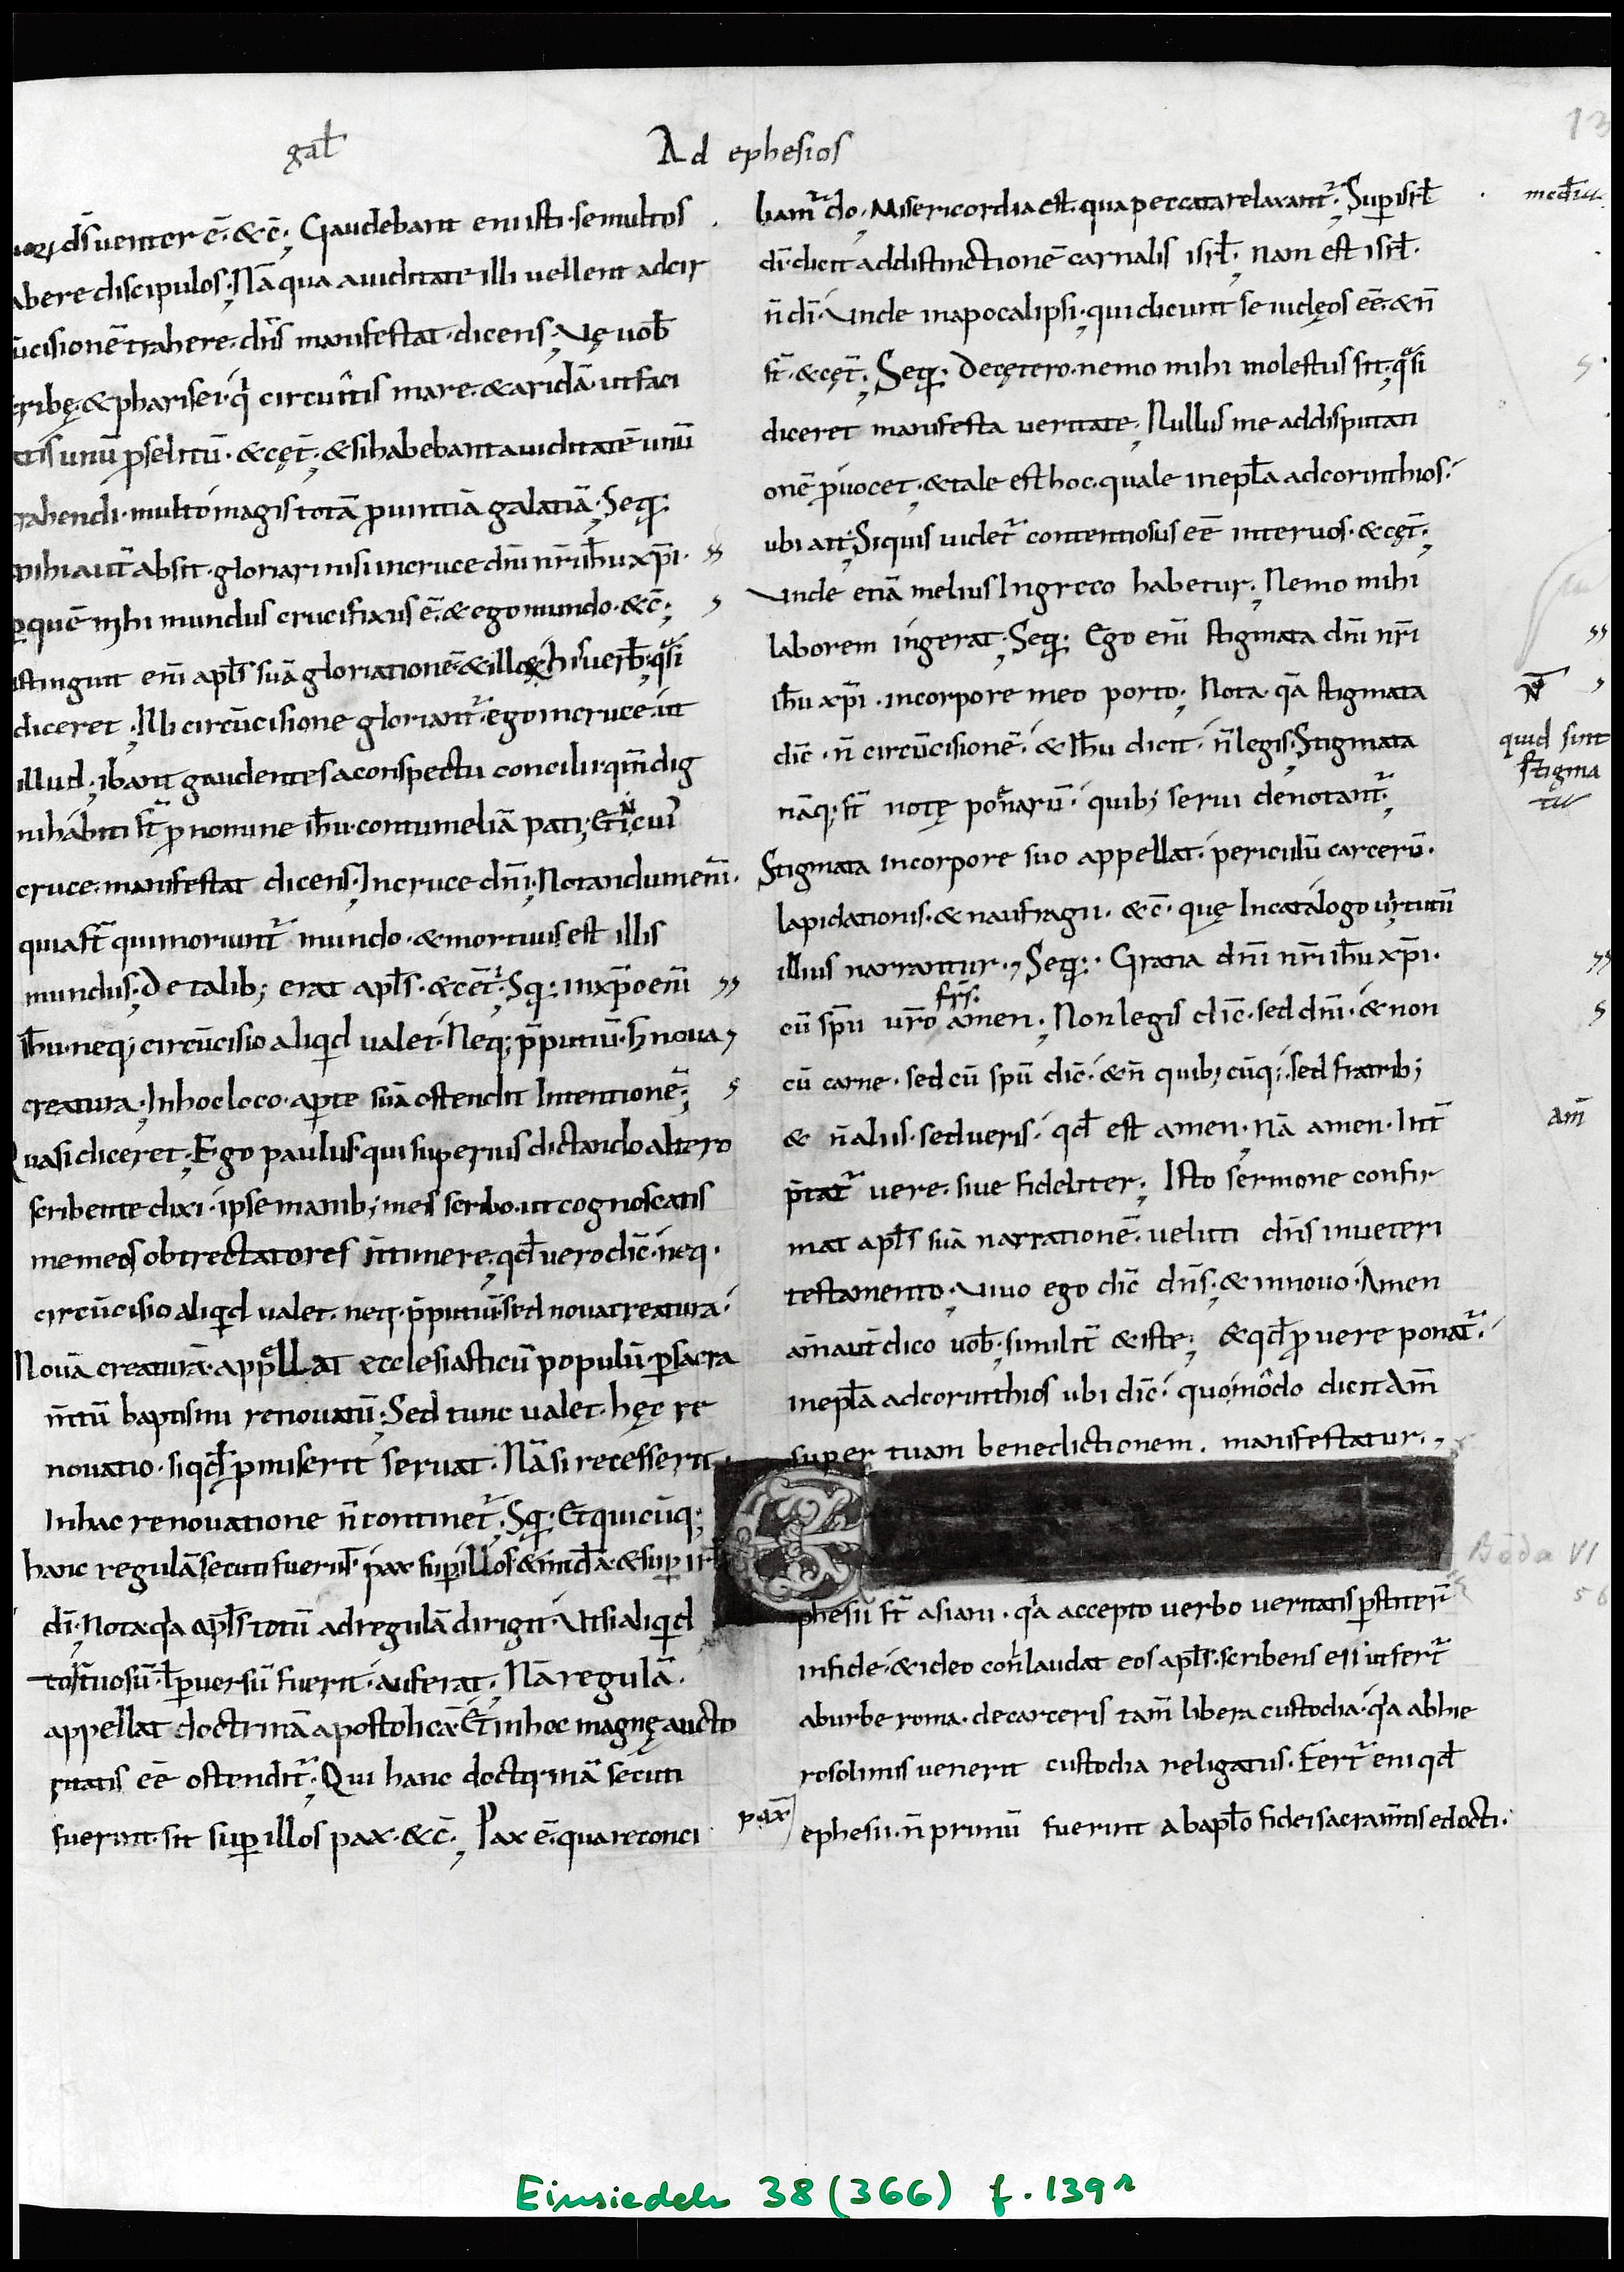 gal̄
Ad ephesios
ds̄ uenter ē. &c̄; Gaudebant enī isti. se multos
abere discipulos; Nā qua auiditate illi uellent ad cir
ūcisionē trahere. dn̄s manifestat. dicens; Vę uob̄
ribę. & pharisei. qi circuitis mare. & aridā. ut faci
atis unū p̄selitū. & cęt̄; & si habebant auiditatē unū
rahendi. multo magis totā ꝓuintiā galatiā; Seq̄:
mihi aut̄ absit. gloriari nisi in cruce dn̄i nr̄i ih̄u xp̄i.
ꝑ quē mihi mundus crucifixus ē. & ego mundo. &c̄;
stinguit enī apl̄s suā gloriationē & illoꝝ his uerb̄; q̄si
diceret; Illi circūcisione gloriant̄. ego in cruce. ut
illud; ibant gaudentes a conspectu concilii. qm̄ dig
ni habiti st̄ ꝓ nomine ih̄u. contumeliā pati; Et in cui'
cruce. manifestat dicens; In cruce dn̄i; Notandum enī.
quia st̄ qui moriunt̄ mundo. & mortuus est illis
mundus; De talib; erat apl̄s. & cēt̄; Sq̄: in xp̄o enī
ih̄u. neq; circūcisio aliqid ualet. Neq; p̄putiū. s; noua
creatura; In hoc loco. aꝑte suā ostendit intentionē;
Quasi diceret; Ego paulus. qui superius dictando altero
scribente dixi. ipse manib; meis scribo. ut cognoscatis
me meos obtrectatores n̄ timere; qd̄ uero dic̄. neq.
circūcisio aliqid ualet. neq. p̄putiū. sed noua creatura.
Nouā creaturā. appellat ecclesiasticū populū. ꝑ sacra
m̄tū baptismi renouatū; Sed tunc ualet. hęc re
nouatio. si qd̄ ꝓmiserit seruat. Nā si recesserit.
In hac renouatione n̄ continet̄; Sq̄: Et quicūq;
hanc regulā secuti fuerint̄. pax suꝑ illos. & mīa. & suꝑ isrl̄
dī. Nota qa apl̄s totū ad regulā dirigit. Vt si aliqid
tortuosū. l̄ ꝑuersū fuerit. auferat; Nā regulā.
appellat doctrinā apostolicā. Et in hoc magnę aucto
ritatis ēē ostendit̄; Qui hanc doctrinā secuti
fuerint. sit suꝑ illos pax. &c̄; Pax ē. qua reconci
pax
liamur̄ do. Misericordia est. qua peccata relaxant̄; Suꝑ isrl̄
dī. dicit ad distinctionē carnalis isrl̄; nam est isrl̄.
n̄ dī. Vnde in apocalipsi. qui dicunt se iudęos ēē. & n̄
st̄. & cęt̄; Seq̄: De cętero. nemo mihi molestus sit; q̄si
diceret manifesta ueritate; Nullus me ad disputati
onē ꝓuocet. & tale est hoc. quale in epl̄a ad corinthios.
ubi ait; Si quis uidet̄ contentiosus ēē inter uos. & cęt̄;
Vnde etiā melius In greco habetur; Nemo mihi
laborem ingerat; Seq̄: Ego enī stigmata dn̄i nr̄i
ih̄u xp̄i. in corpore meo porto; Nota. qa stigmata
dic̄. n̄ circūcisionē. & ih̄u dicit. n̄ legis; Stigmata
nāq; st̄ notę poenarū. quib; serui denotant̄;
Stigmata in corpore suo appellat. periculū carcerū.
lapidationis. & naufragii. &c̄. quę In catalogo uirtutū
illius narrantur; Seq̄: Gratia dn̄i nr̄i ih̄u xp̄i.
cū spū ur̄o frs̄: amen; Non legis dic̄. sed dn̄i. & non
cū carne. sed cū spū dic̄. & n̄ quib; cūq;. sed fratrib;
& n̄ aliis. sed ueris. qd̄ est amen. Nā amen. Int̄
p̄tat̄ uere. siue fideliter; Isto sermone confir
mat apl̄s suā narrationē. ueluti dn̄s in ueteri
testamento; Viuo ego dic̄ dn̄s; & in nouo. Amen
am̄ aut̄ dico uob̄; similit̄ & iste; & qd̄ ꝓ uere ponat̄.
in epl̄a ad corinthios ubi dic̄. quomodo dicit Am̄
super tuam benedictionem. manifestatur.
E
phesii st̄ asiani. qa accepto uerbo ueritatis ꝑstiter̄
in fide. & ideo conlaudat eos apl̄s. scribens eis ut fert̄
ab urbe roma. de carceris tam̄ libera custodia. qa ab hie
rosolimis uenerit custodia religatus. Fert̄ enī qd̄
ephesii. n̄ primū fuerint ab apl̄o fidei sacram̄tis edocti.
N̄
quid sint
stigma
ta
am̄
Beda VI
56
13
Einsiedeln 38 (366) f. 139r